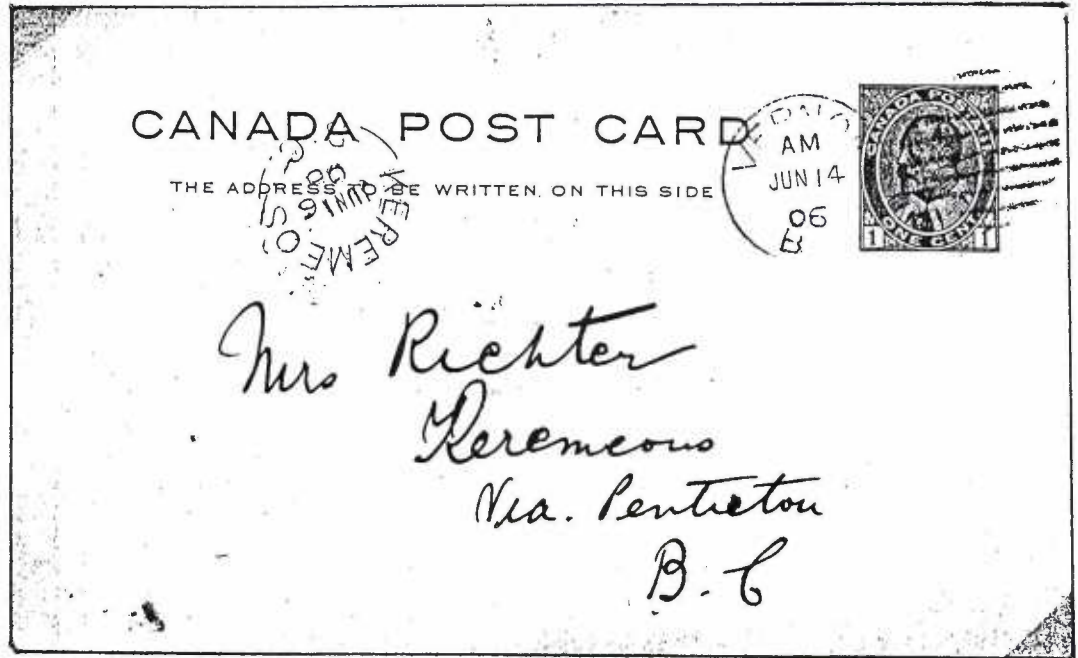 CANADA POST CARD
THE ADDRESS TO BE WRITTEN ON THIS SIDE
AM
JUN 14
06
B
KEREMEOS
JUN 16
06
CANADA POSTAGE
ONE CENT
1 1
Mrs Richter
Keremeous
Via. Penticton
B. C